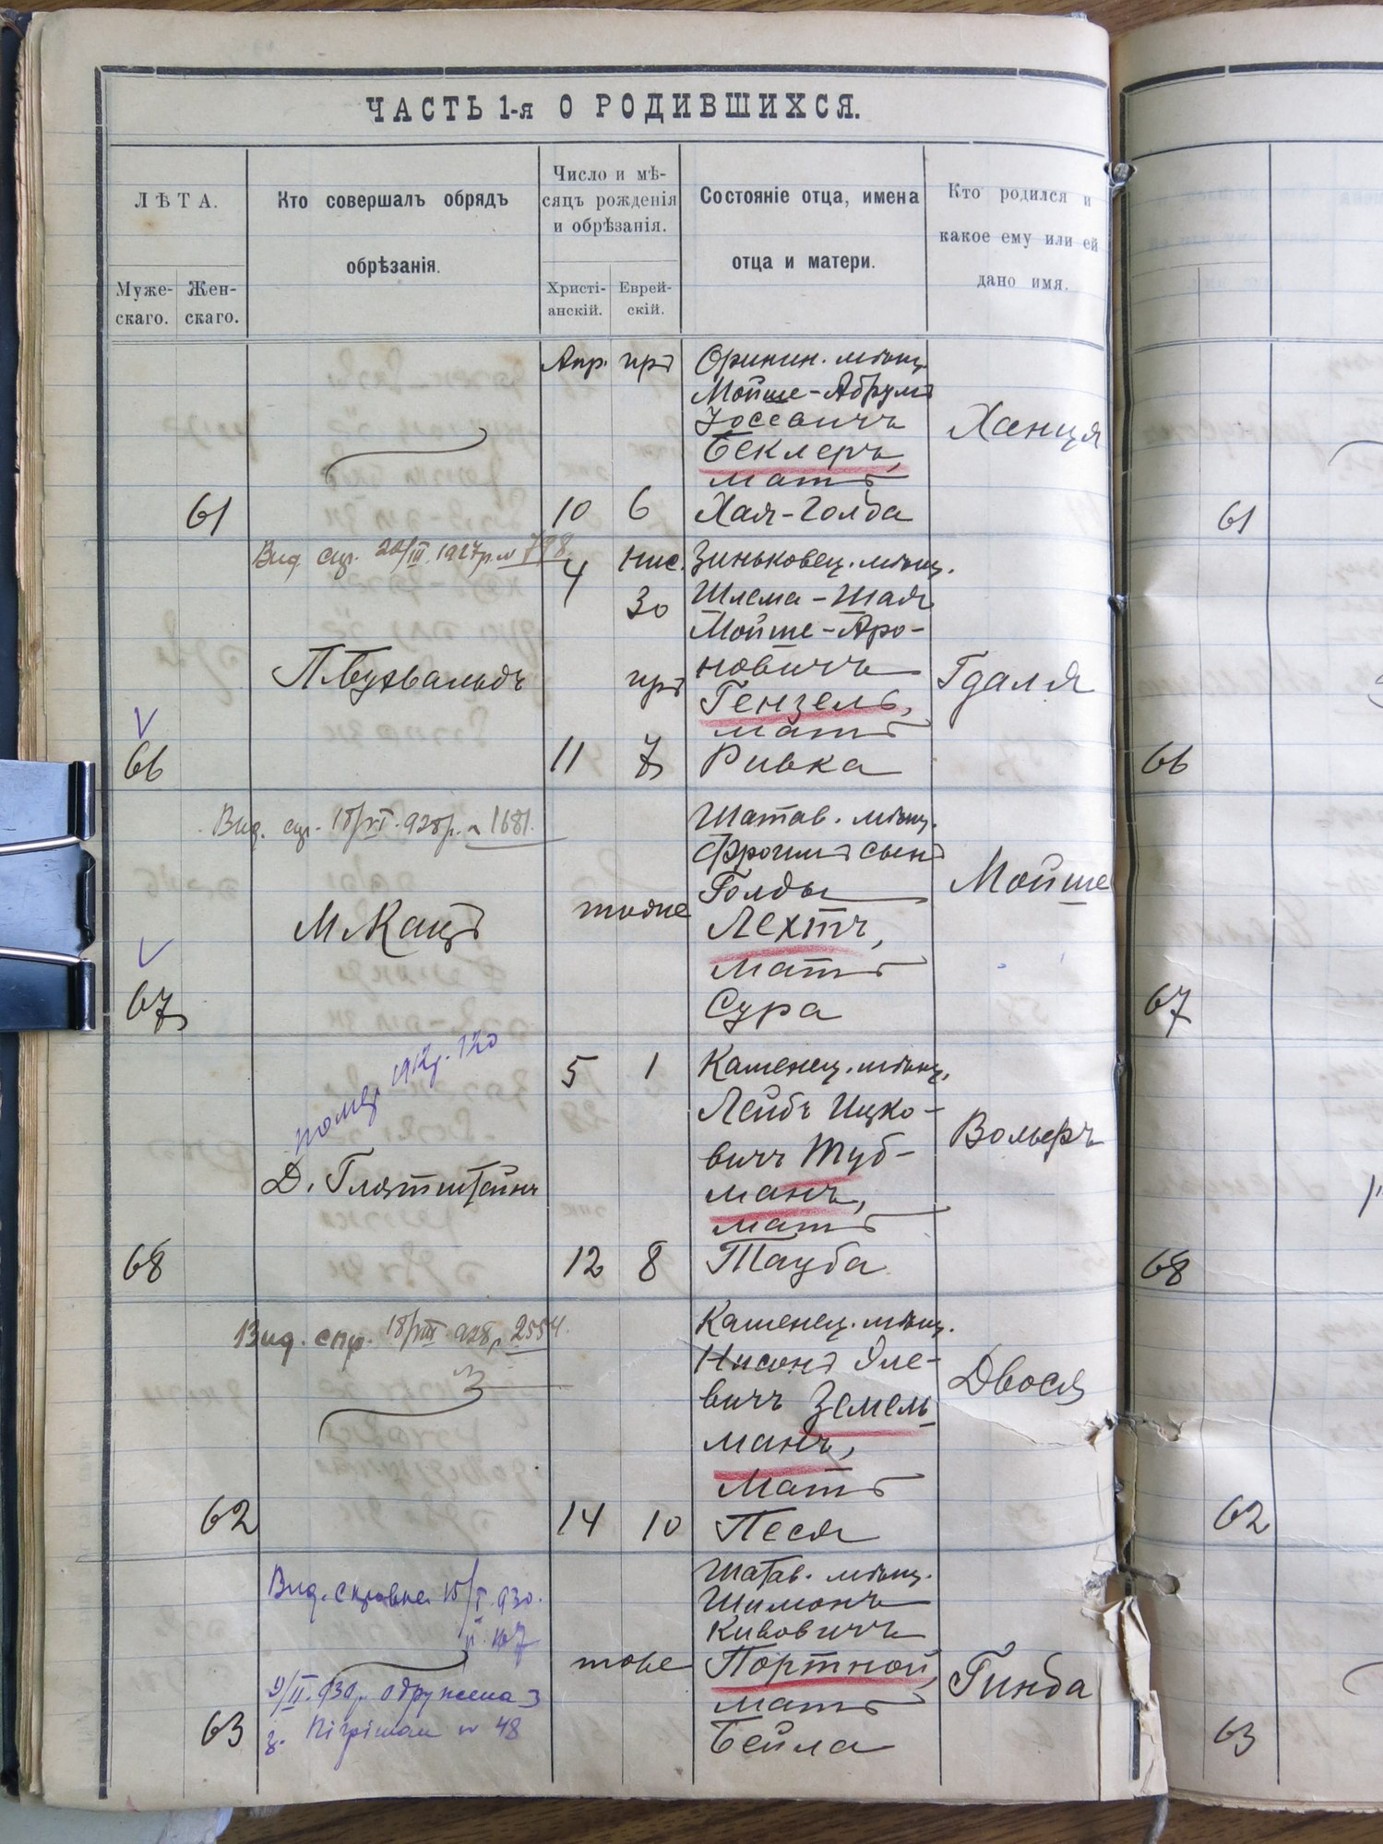 ЧАСТЬ 1-я О РОДИВШИХСЯ.
ЛѢТА.
Муже-
скаго.
Жен-
скаго.
Кто совершалъ обрядъ
обрѣзанія.
Число и мѣ-
сяцъ рожденія
и обрѣзанія.
Христі-
анскій.
Еврей-
скій.
Состояніе отца, имена
отца и матери.
Кто родился и
какое ему или ей
дано имя.
61
Апр.
10
6
Оринин. мѣщ.
Мойше-Абрумъ
Іосевичъ
Беклеръ,
мать
Хая-Голда
Ханця
61
Вид. 20/III 1927р. № 798
66
4
Нис.
30
11
7
Зиньковец. мѣщ.
Шлема-Шая
Мойше-Аро-
новичъ
Гензель,
мать
Ривка
Гдаля
66
Вид. 1681.
67
М Кацъ
тоже
Шатав. мѣщ.
Фроимъ сынъ
Голды
Лехтъ,
мать
Сура
Мойше
67
68
Д. Глотштейнъ
5
1
12
8
Каменец. мѣщ.
Лейбъ Ицко-
вичъ Туб-
манъ,
мать
Тауба
Вольфъ
68
Вид. спр. 18/VIII 928р. 2554.
62
14
10
Каменец. мѣщ.
Нисонъ Эле-
вичъ Земель
манъ,
Мать
Песя
Двося
62
Вид. справка 15/I 930.
63
9/II 930р. одружена з
№ 48
тоже
Шатав. мѣщ.
Шимонъ
Кивовичъ
Портной,
мать
Бейла
Гинда
63